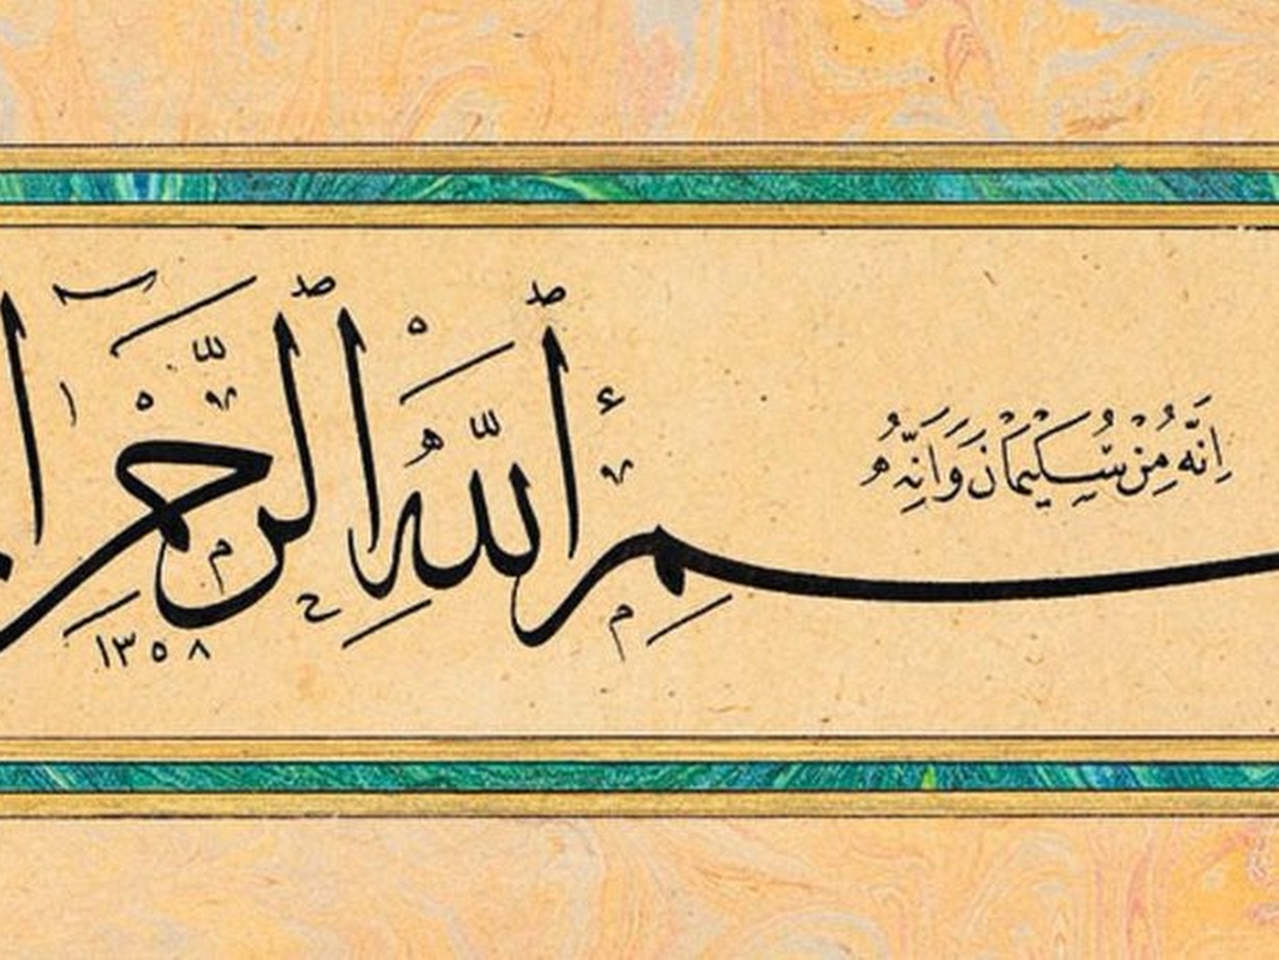 اِنَّهُ مِنْ سُلَيْمَانَ وَاِنَّهُ
سم ٱللّٰهِ ٱلرَّحْمٰ
١٣٥٨